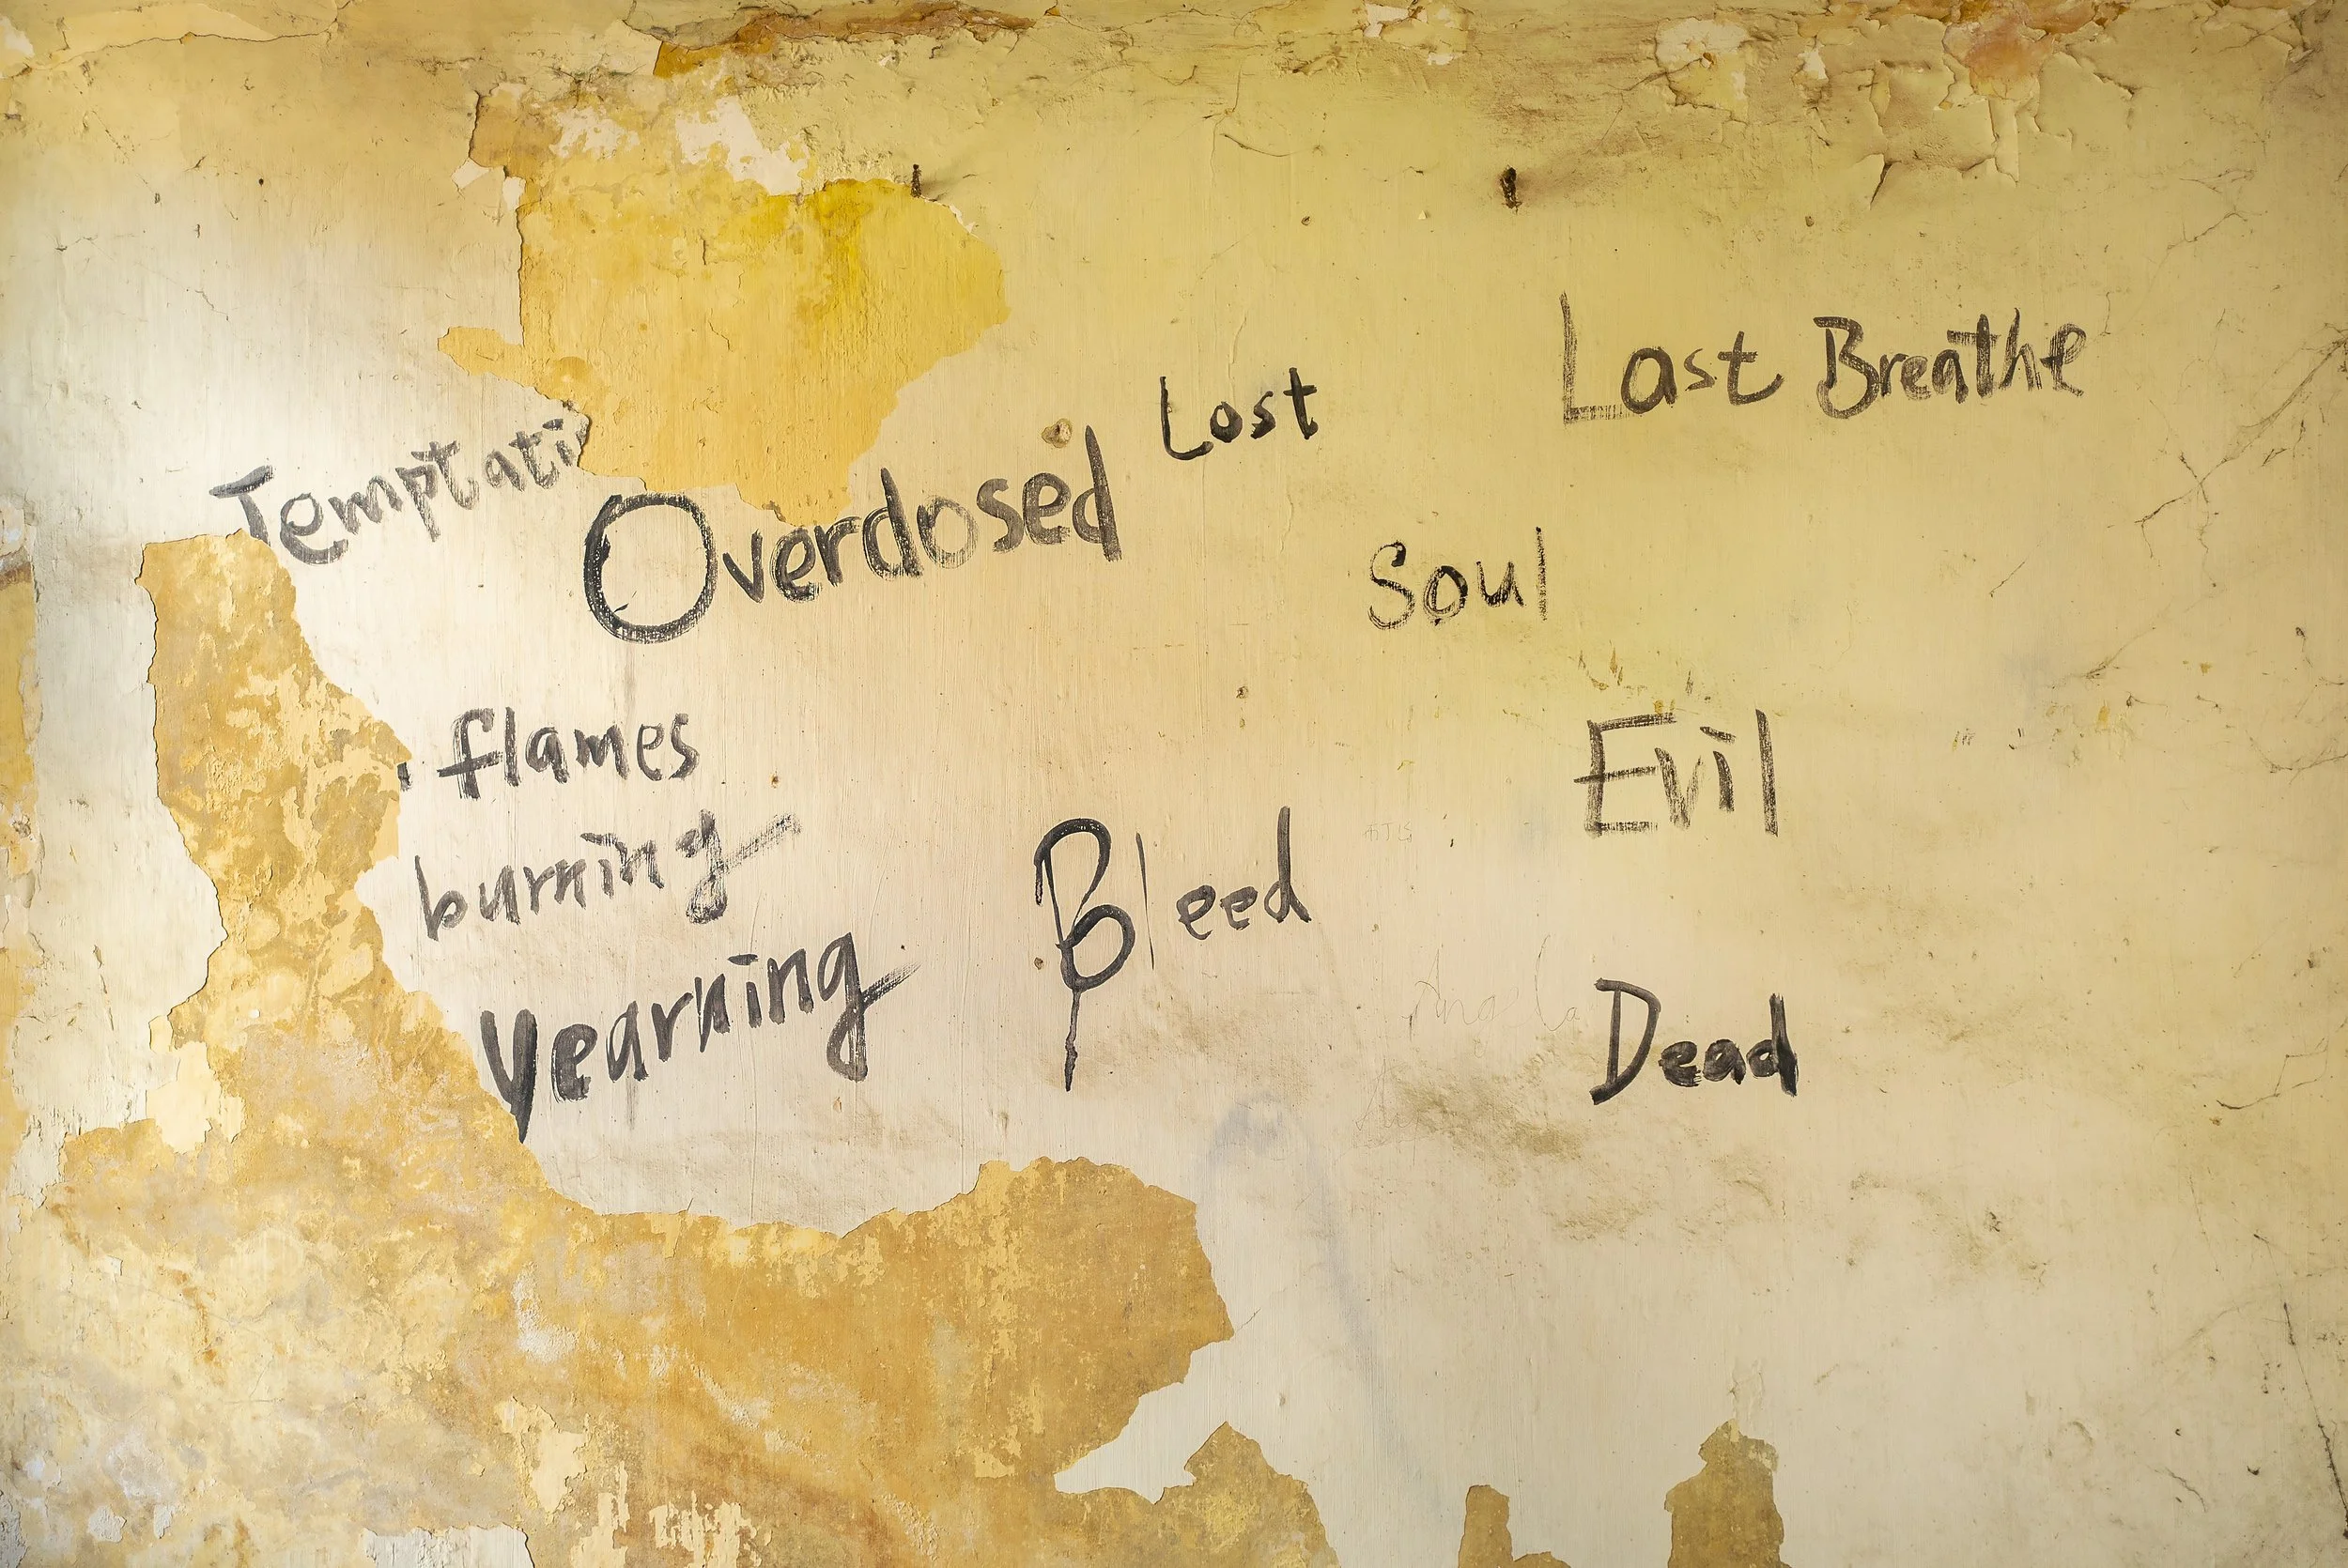 Last Breathe
Lost
Temptati
Overdosed
Soul
flames
Evil
burning
Bleed
yearning
Dead